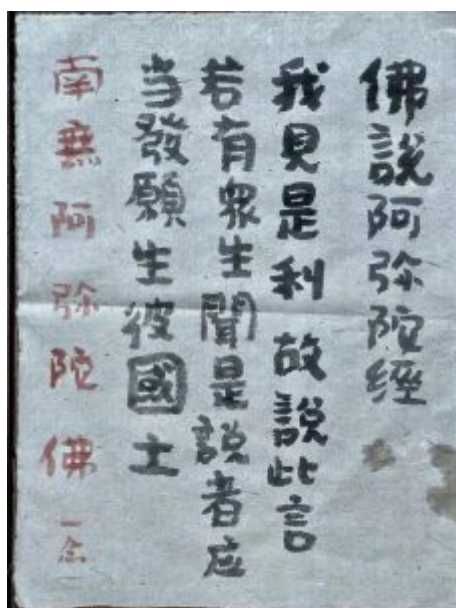 佛說阿弥陀經
我見是利故說此言
若有衆生聞是説者应
当發願生彼國土
南無阿弥陀佛
一念